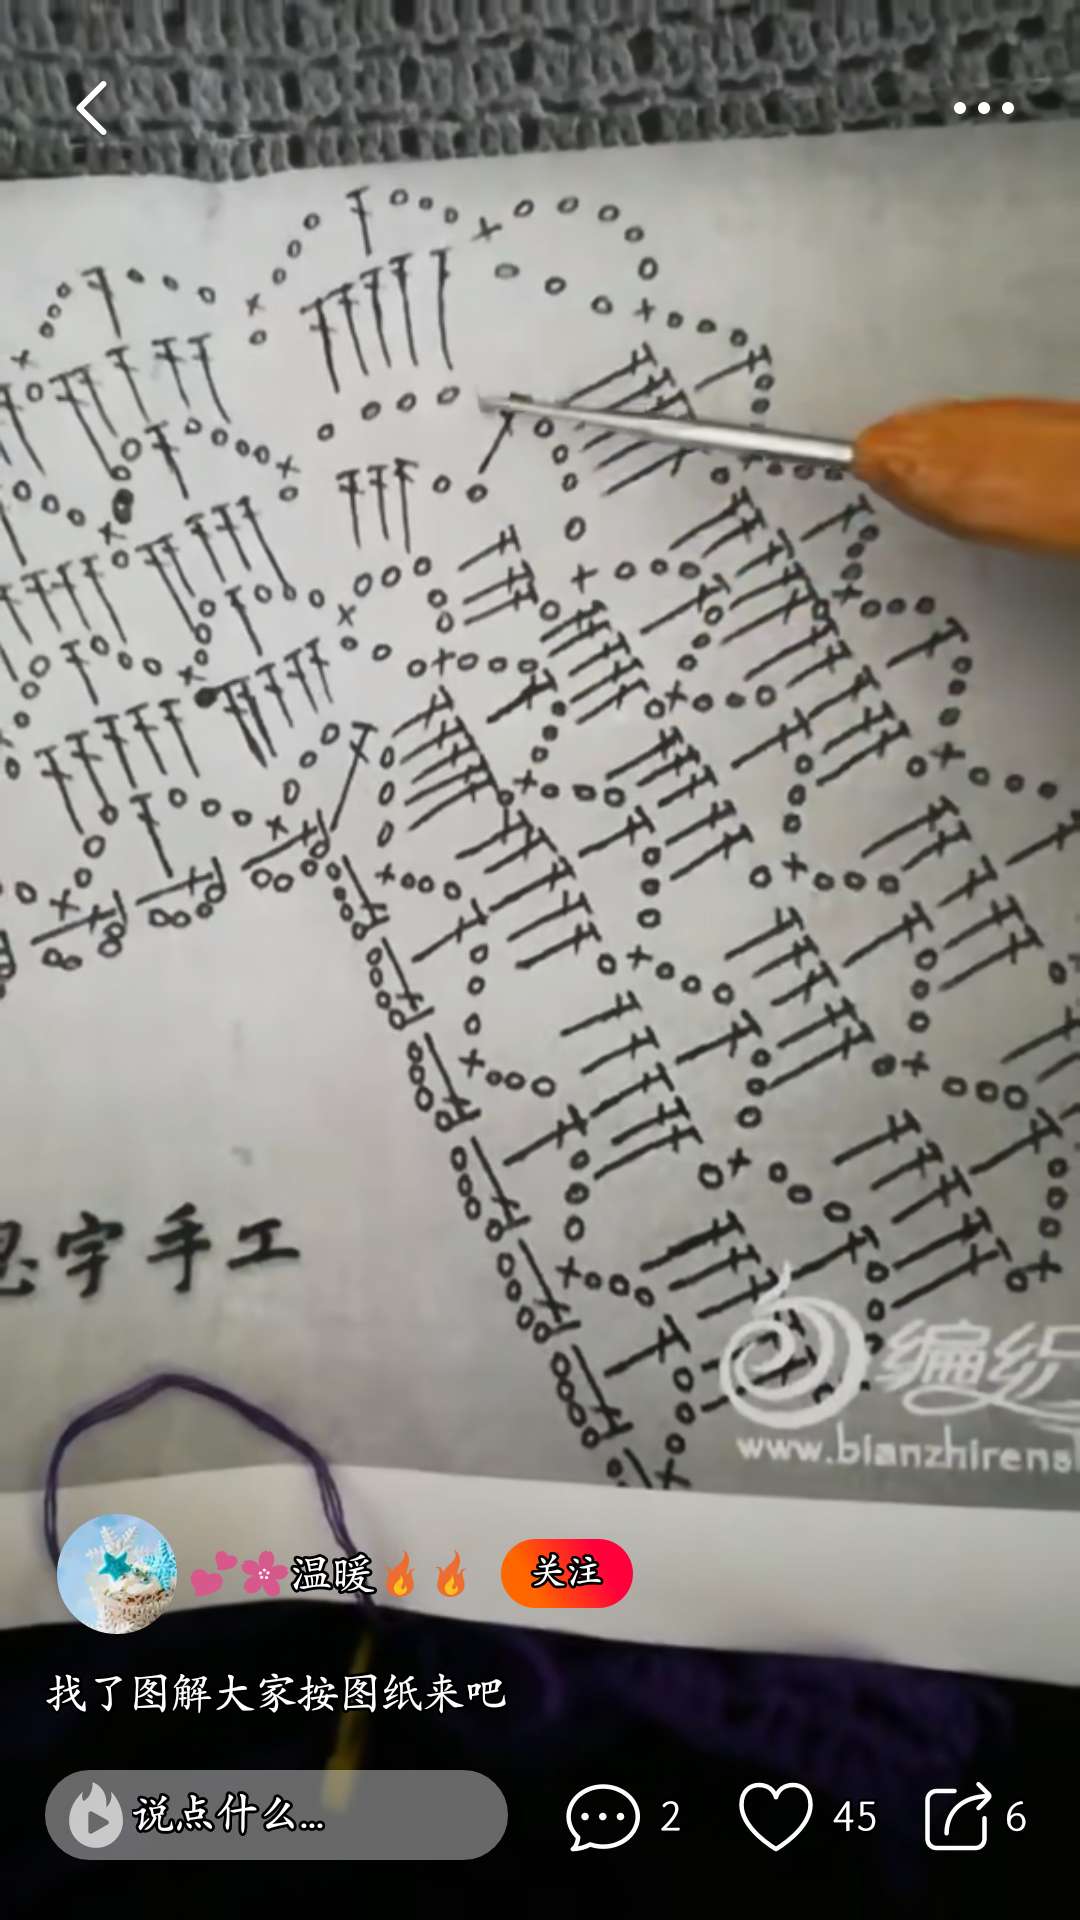 字手工
编织
www.bianzhirens
温暖
关注
找了图解大家按图纸来吧
说点什么...
2
45
6